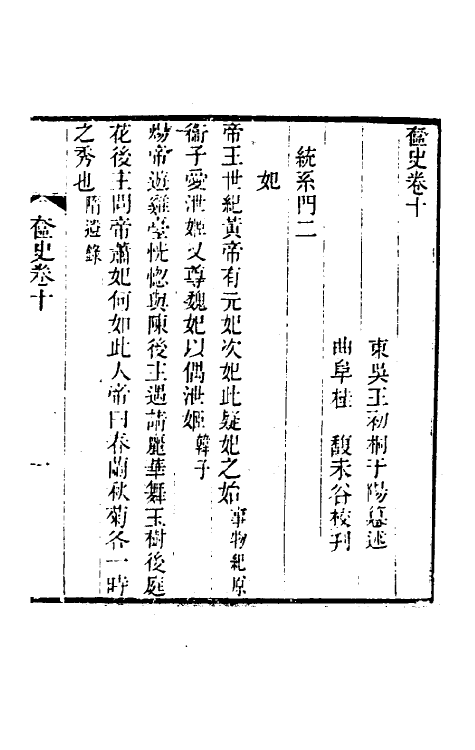 奩史卷十
東吳王初桐于陽纂述
曲阜桂馥未谷校刋
統系門二
妃
帝王世紀黃帝有元妃次妃此疑妃之始事物紀原
衞子愛泄姬又尊魏妃以偶泄姬韓子
煬帝遊雞臺恍惚與陳後主遇請麗華舞玉樹後庭
花後主問帝蕭妃何如此人帝曰春蘭秋菊各一時
之秀也隋遺錄
奩史卷十
一